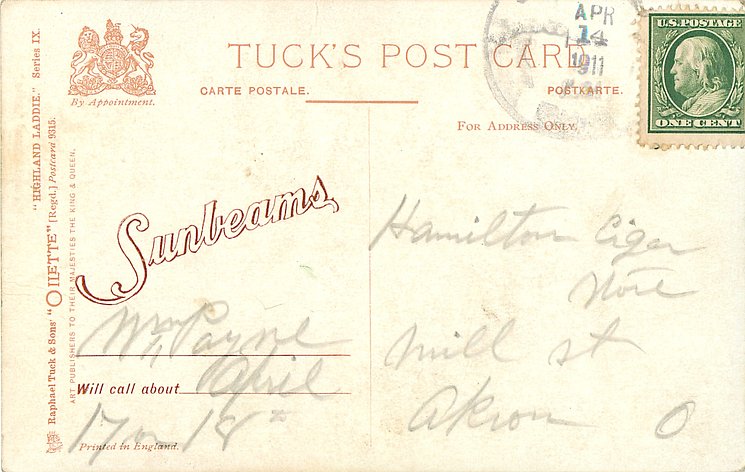 TUCK'S POST CARD
CARTE POSTALE.
POSTKARTE.
By Appointment.
FOR ADDRESS ONLY.
APR
14
1911
U.S. POSTAGE
ONE CENT
"HIGHLAND LADDIE." Series IX.
Raphael Tuck & Sons' "OILETTE" [Regd.] Postcard 9315.
ART PUBLISHERS TO THEIR MAJESTIES THE KING & QUEEN.
Sunbeams
Wm Payne
Will call about April
17 or 18
Printed in England.
Hamilton Cigar
Store
Mill st
Akron O